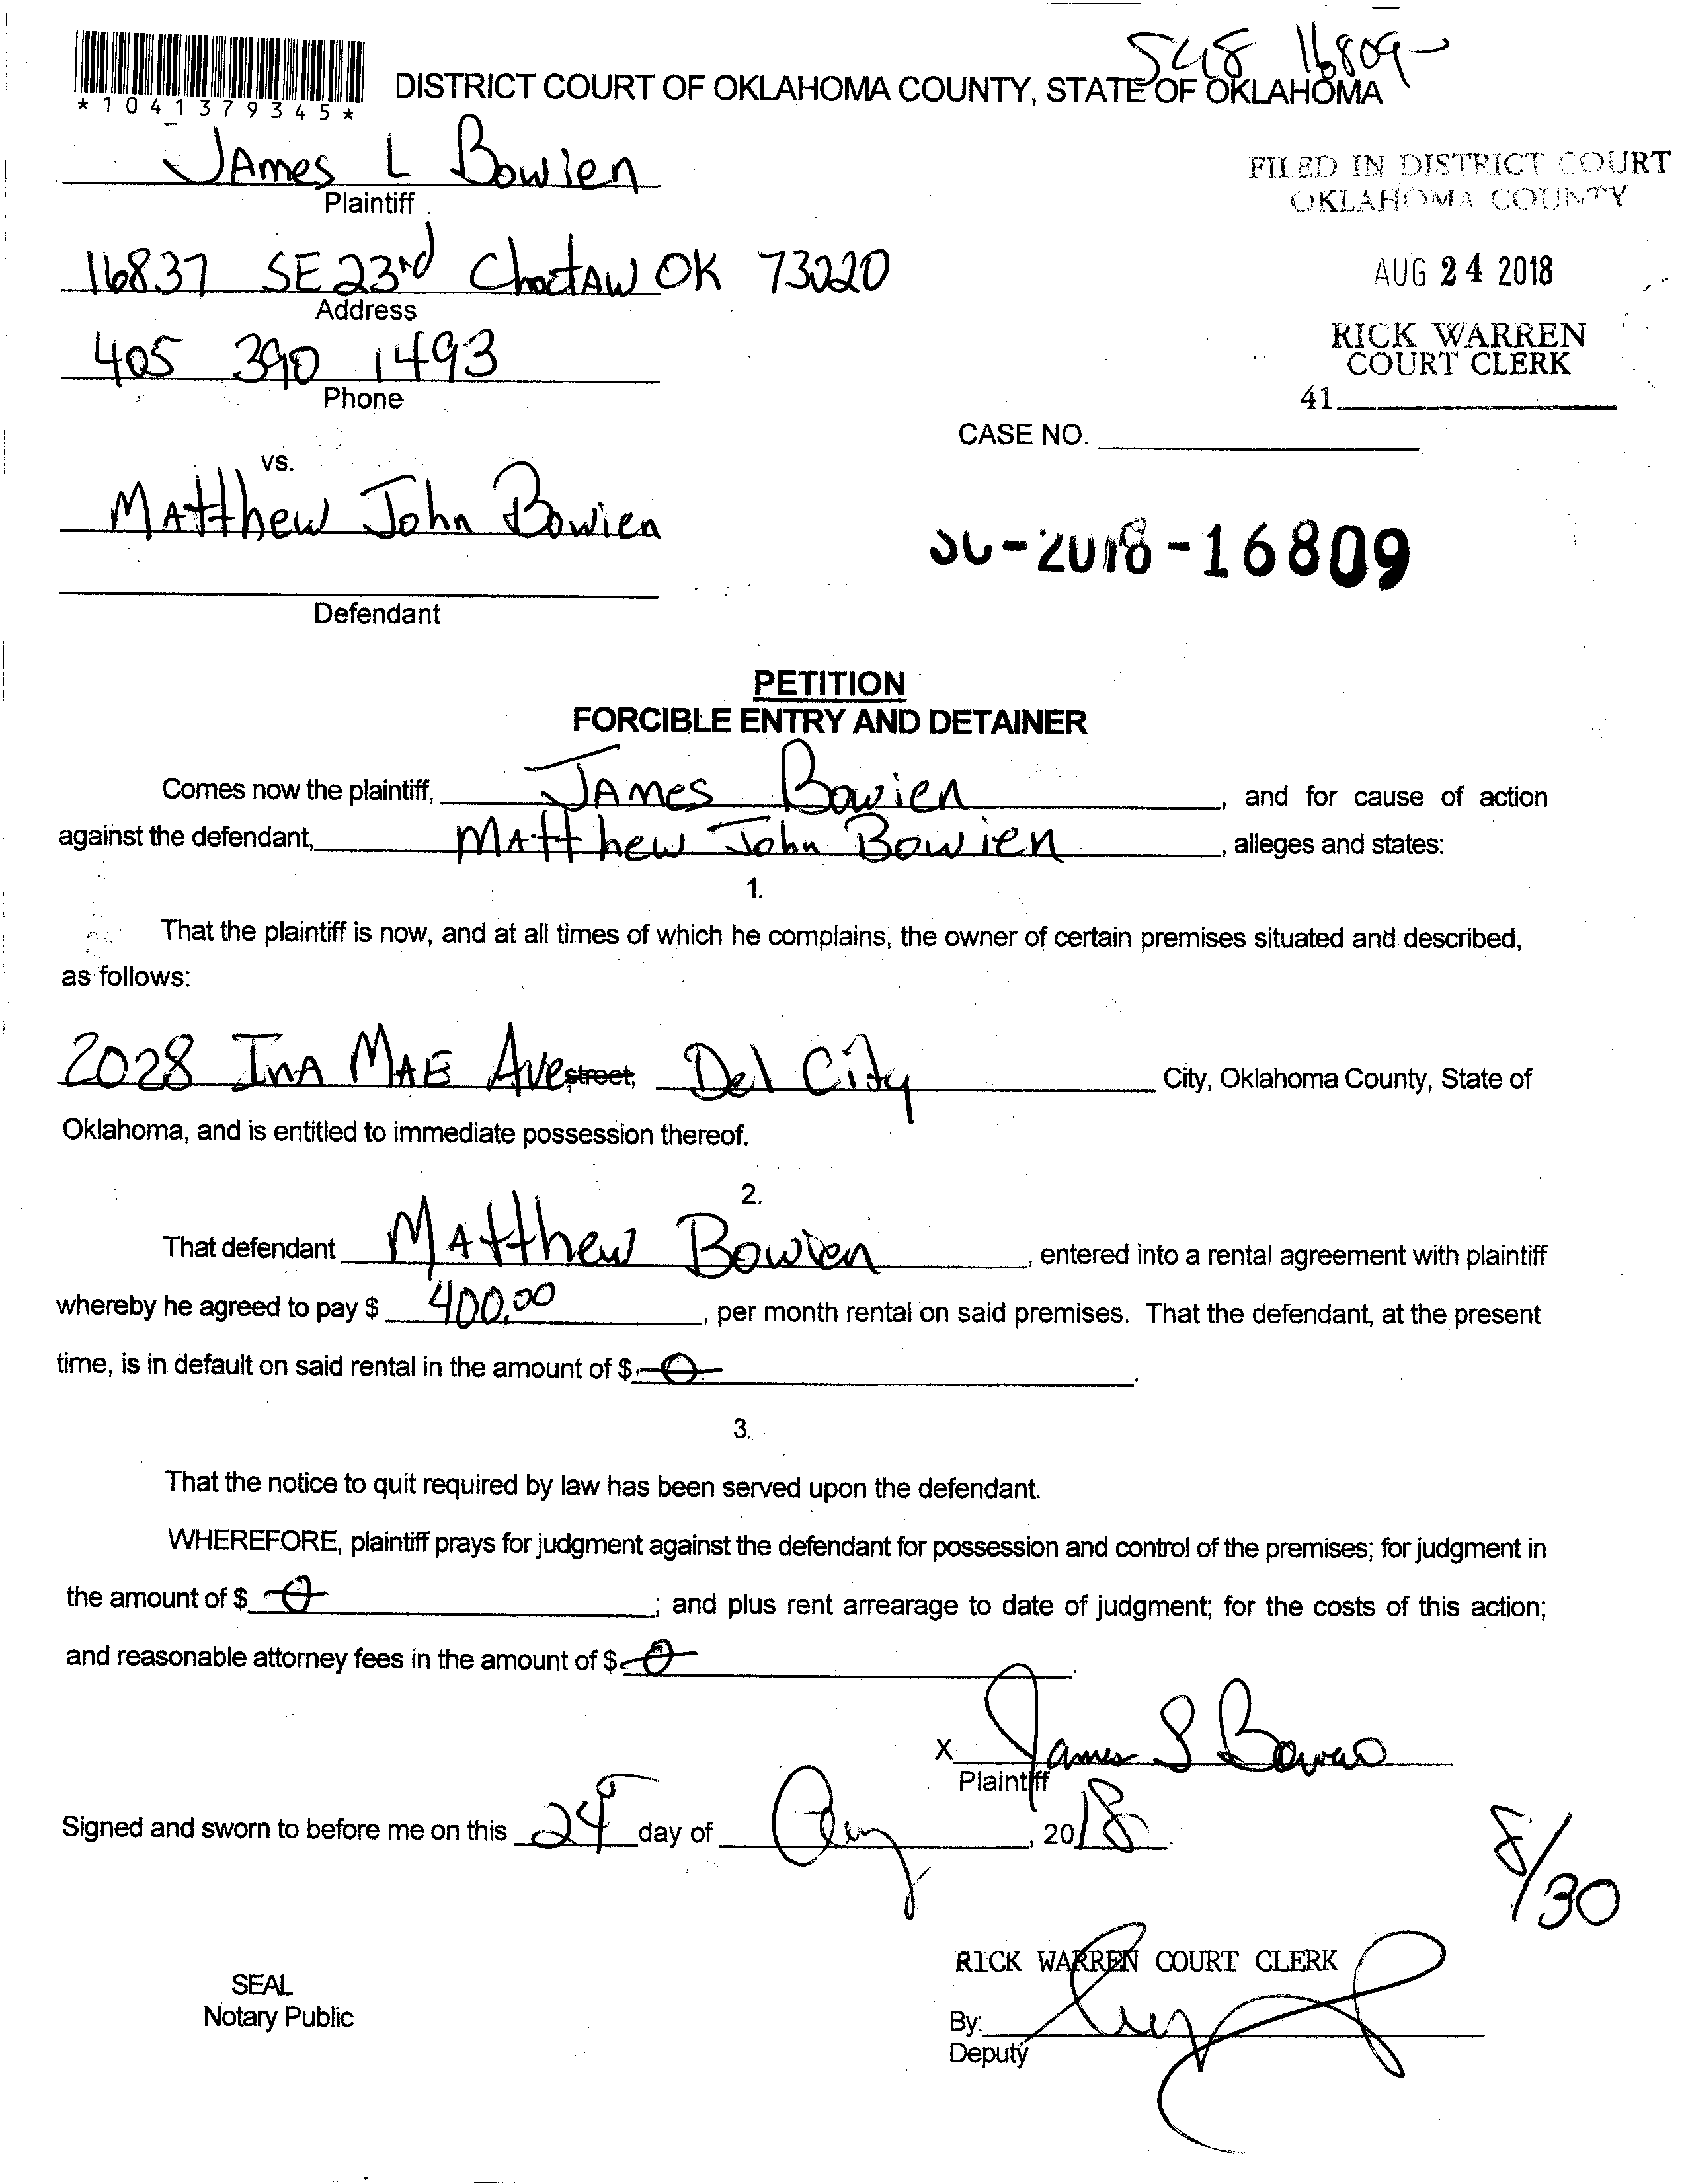 SC18 16809
*1041379345*
DISTRICT COURT OF OKLAHOMA COUNTY, STATE OF OKLAHOMA
JAmes L Bowien
Plaintiff
FILED IN DISTRICT COURT
OKLAHOMA COUNTY
16837 SE 23rd Choctaw OK 73020
Address
AUG 24 2018
405 390 1493
Phone
RICK WARREN
COURT CLERK
41
CASE NO.
vs.
MAtthew John Bowien
SC-2018-16809
Defendant
PETITION
FORCIBLE ENTRY AND DETAINER
Comes now the plaintiff, JAmes Bowien, and for cause of action
against the defendant, MAtthew John Bowien, alleges and states:
1.
That the plaintiff is now, and at all times of which he complains, the owner of certain premises situated and described,
as follows:
2028 InA MAE Ave street, Del City City, Oklahoma County, State of
Oklahoma, and is entitled to immediate possession thereof.
2.
That defendant MAtthew Bowien, entered into a rental agreement with plaintiff
whereby he agreed to pay $ 400.00, per month rental on said premises. That the defendant, at the present
time, is in default on said rental in the amount of $ 0.
3.
That the notice to quit required by law has been served upon the defendant.
WHEREFORE, plaintiff prays for judgment against the defendant for possession and control of the premises; for judgment in
the amount of $ 0; and plus rent arrearage to date of judgment; for the costs of this action;
and reasonable attorney fees in the amount of $ 0.
X James L Bowien
Plaintiff
Signed and sworn to before me on this 24 day of Aug, 2018.
8/30
RICK WARREN COURT CLERK
SEAL
Notary Public
By:
Deputy